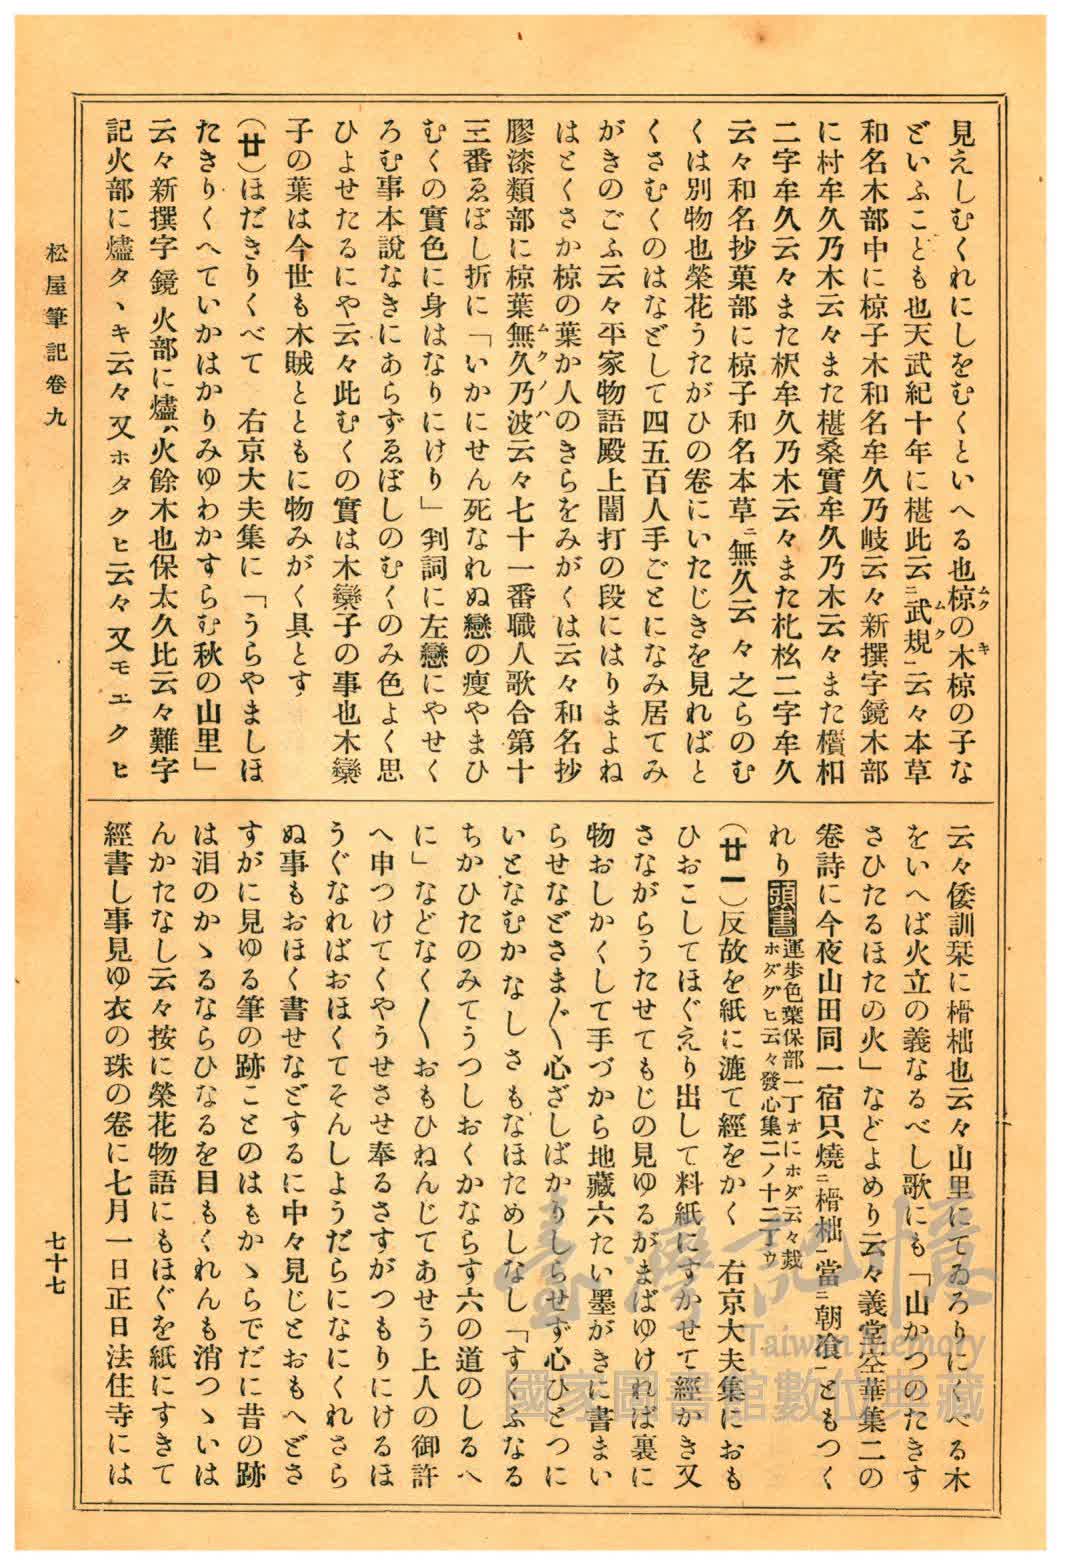 見えしむくれにしをむくといへる也椋の木椋の子な
どいふことも也天武紀十年に椹此云ニ武規一云々本草
和名木部中に椋子木和名牟久乃岐云々新撰字鏡木部
に村牟久乃木云々また椹桑實牟久乃木云々また櫕柤
二字牟久云々また柷牟久乃木云々また朼柗二字牟久
云々和名抄菓部に椋子和名本草ニ無久云々之らのむ
くは別物也榮花うたがひの卷にいたじきを見ればと
くさむくのはなどして四五百人手ごとになみ居てみ
がきのごふ云々平家物語殿上闇打の段にはりまよね
はとくさか椋の葉か人のきらをみがくは云々和名抄
膠漆類部に椋葉無久乃波云々七十一番職人歌合第十
三番ゑぼし折に「いかにせん死なれぬ戀の瘦やまひ
むくの實色に身はなりにけり」判詞に左戀にやせく
ろむ事本說なきにあらずゑぼしのむくのみ色よく思
ひよせたるにや云々此むくの實は木欒子の事也木欒
子の葉は今世も木賊とともに物みがく具とす
(廿)ほだきりくべて　右京大夫集に「うらやましほ
たきりくへていかはかりみゆわかすらむ秋の山里」
云々新撰字鏡火部に燼、火餘木也保太久比云々難字
記火部に燼タヽキ云々又ホタクヒ云々又モエクヒ
云々倭訓栞に榾柮也云々山里にてゐろりにくべる木
をいへば火立の義なるべし歌にも「山かつのたきす
さひたるほたの火」などよめり云々義堂空華集二の
卷詩に今夜山田同一宿只燒ニ榾柮一當ニ朝飡一ともつく
れり頭書運歩色葉保部一丁オにホダ云々栽
ホダグヒ云々發心集二ノ十二丁ウ
(廿一)反故を紙に漉て經をかく　右京大夫集におも
ひおこしてほぐえり出して料紙にすかせて經かき又
さながらうたせてもじの見ゆるがまばゆければ裏に
物おしかくして手づから地藏六たい墨がきに書まい
らせなどさま〴〵心ざしばかりしらせず心ひとつに
いとなむかなしさもなほためしなし「すくふなる
ちかひたのみてうつしおくかならす六の道のしるへ
に」などなく〳〵おもひねんじてあせう上人の御許
へ申つけてくやうせさせ奉るさすがつもりにけるほ
うぐなればおほくてそんしようだらになにくれさら
ぬ事もおほく書せなどするに中々見じとおもへどさ
すがに見ゆる筆の跡ことのはもかゝらでだに昔の跡
は泪のかゝるならひなるを目もくれんも消つゝいは
んかたなし云々按に榮花物語にもほぐを紙にすきて
經書し事見ゆ衣の珠の卷に七月一日正日法住寺には
松屋筆記卷九
七十七
臺灣記憶
Taiwan Memory
國家圖書館數位典藏